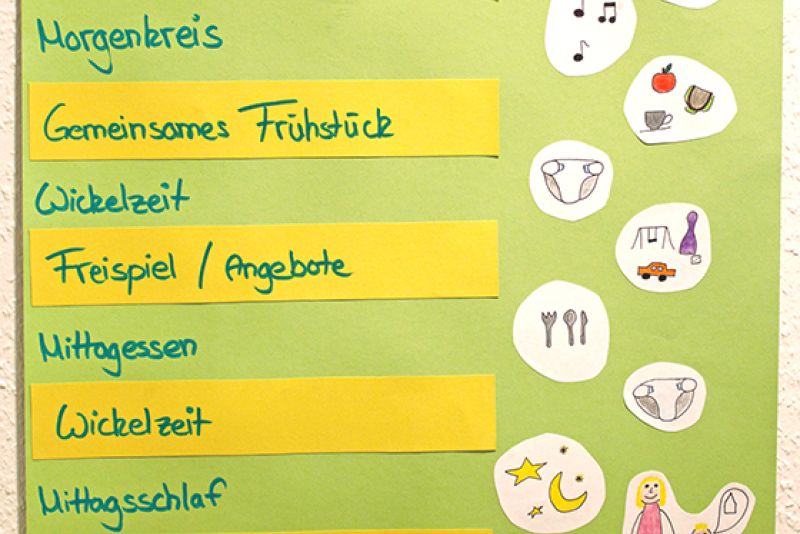 Morgenkreis
Gemeinsames Frühstück
Wickelzeit
Freispiel / Angebote
Mittagessen
Wickelzeit
Mittagsschlaf